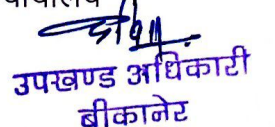 उपखण्ड अधिकारी
बीकानेर